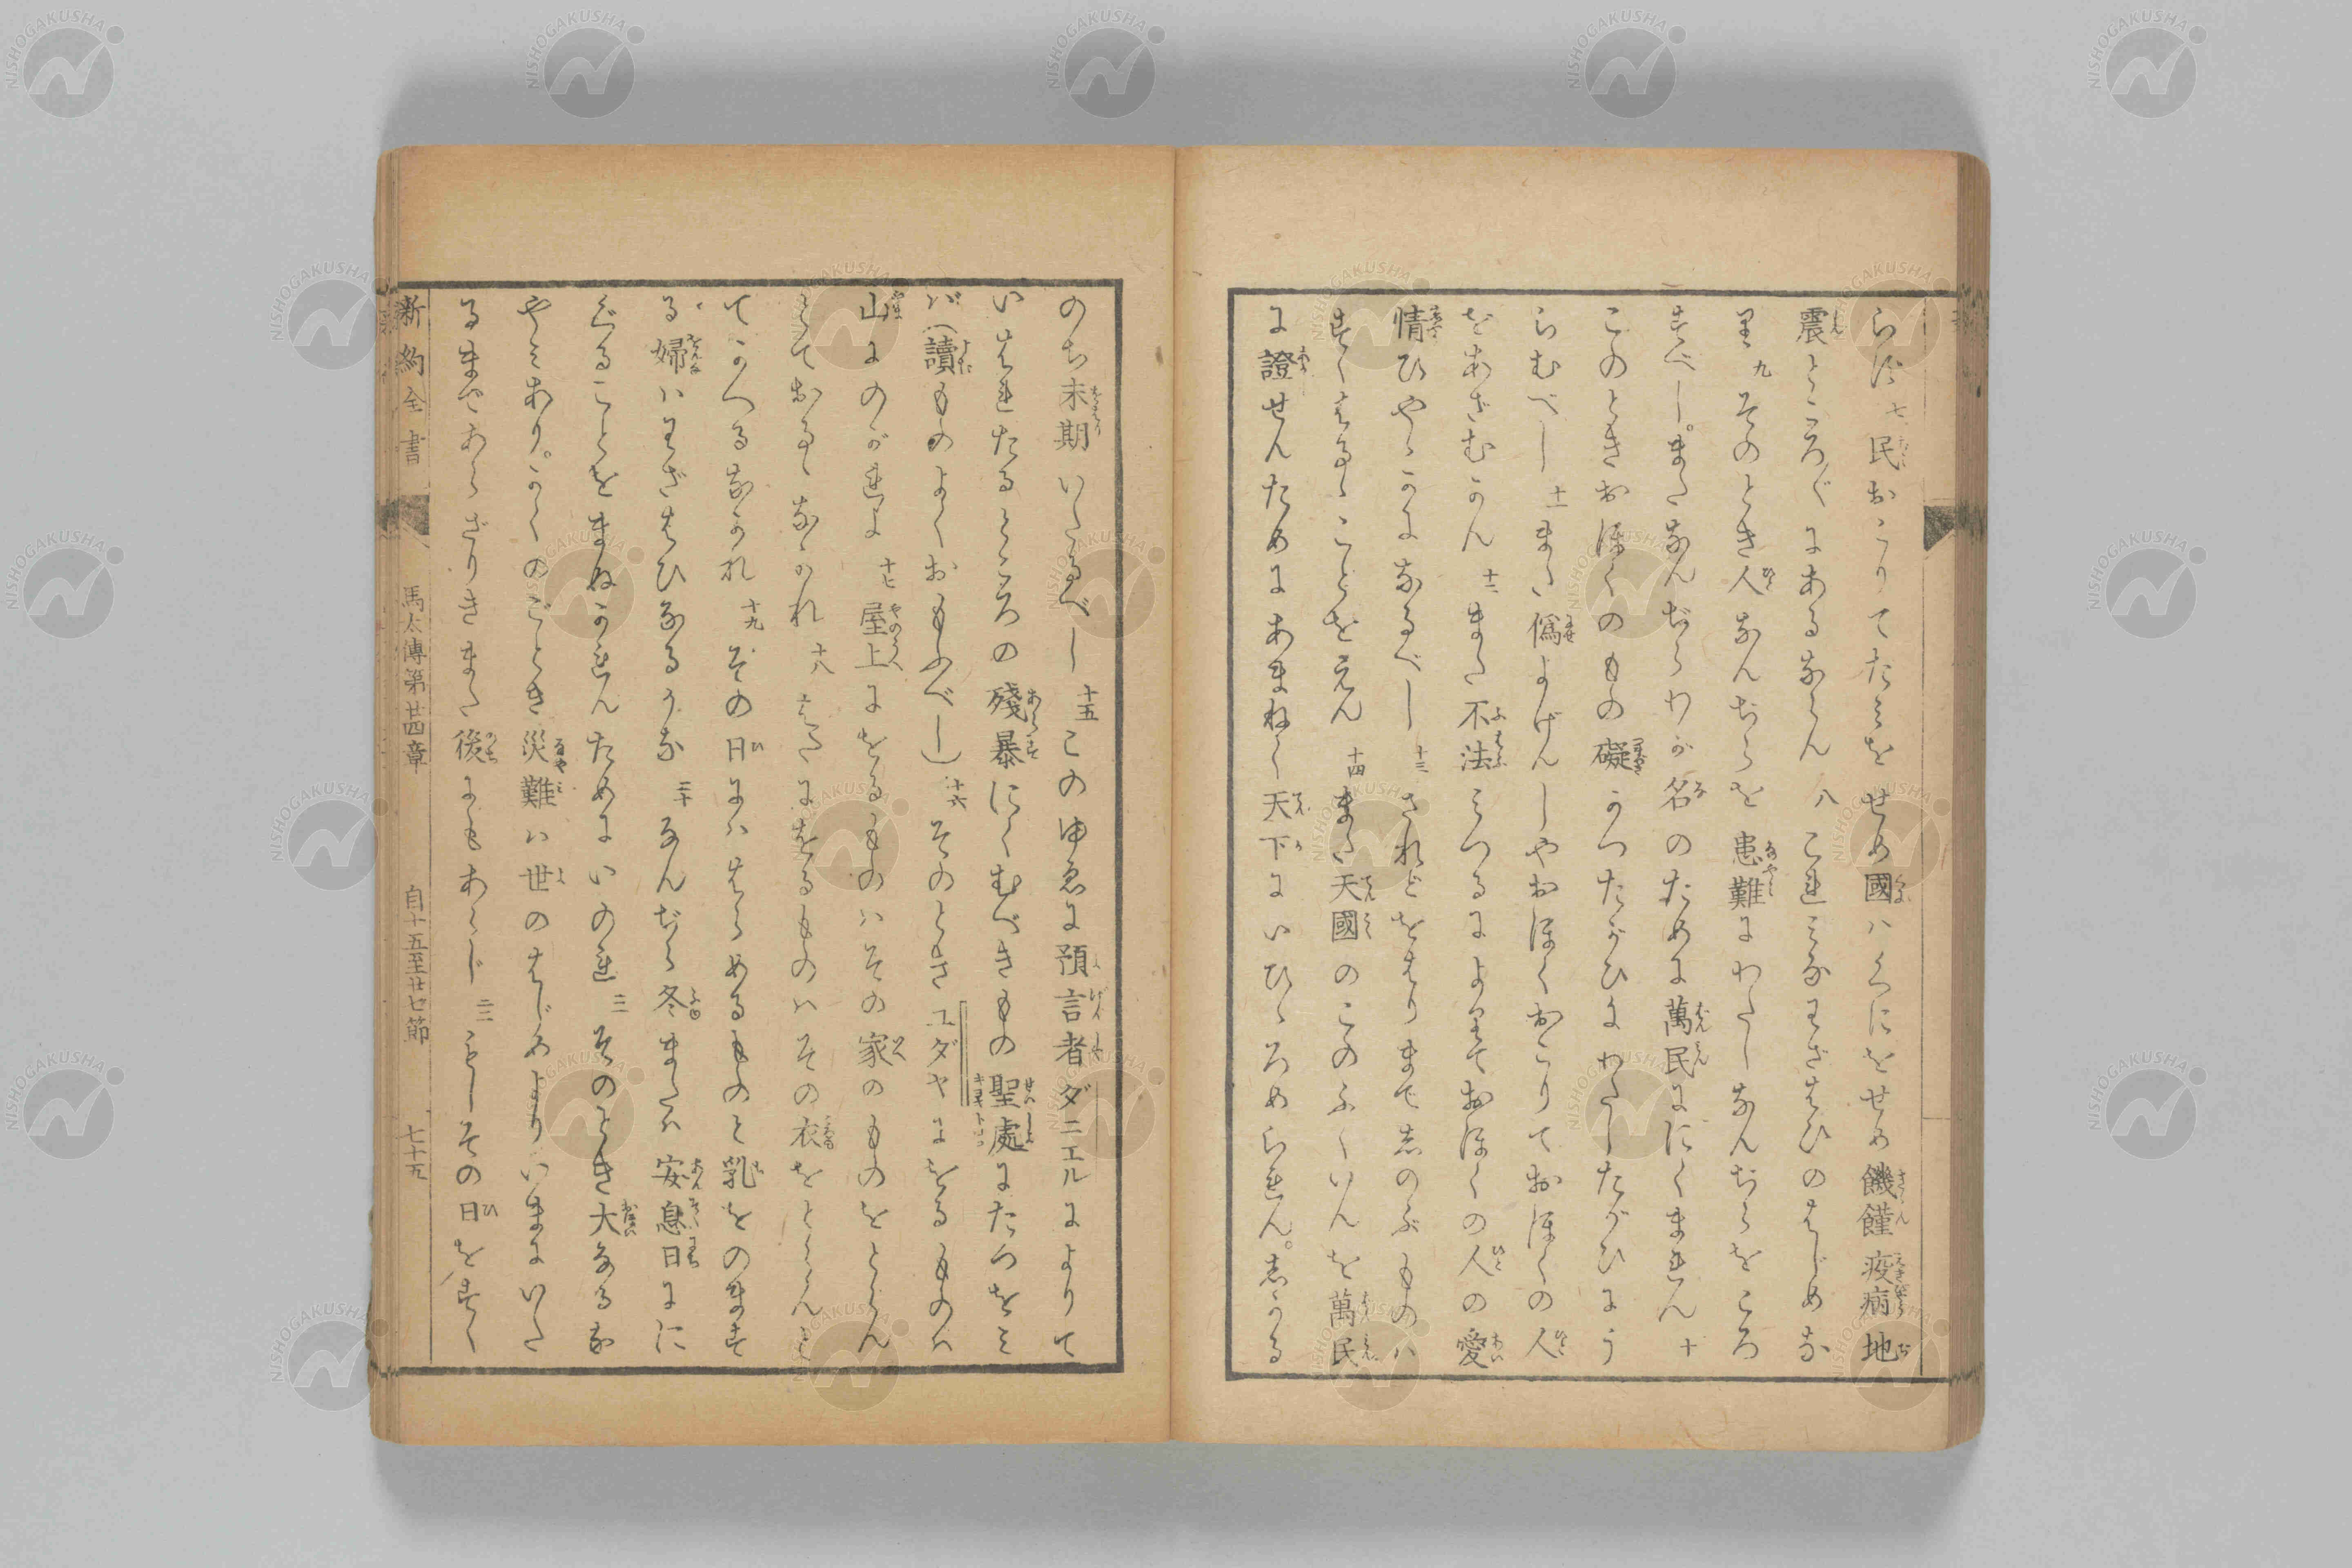 らず 七 民おこりてたみをせめ國ハくにをせめ饑饉疫病地
震ところ〴〵にあるならん 八 これミなわざはひのはじめな
り 九 そのとき人なんぢらを患難にわたしなんぢらをころ
すべし。またなんぢらわが名のために萬民ににくまれん 十
このときおほくのもの礙かつたがひにわたしたがひにう
らむべし 十一 また僞よげんしやおほくおこりておほくの人
をあざむかん 十二 また不法ミつるによりておほくの人の愛
情ひやゝかになるべし 十三 されどをはりまで志のぶものハ
すくはるゝことをえん 十四 また天國のこのふくいんを萬民
に證せんためにあまねく天下にいひゝろめられん。志かる
のち末期いたるべし 十五 このゆゑに預言者ダニエルによりて
いはれたるところの殘暴にくむべきもの聖處にたつをミ
バ(讀ものよくおもふべし) 十六 そのときユダヤにをるものハ
山にのがれよ 十七 屋上にをるものハその家のものをとらん
とておるゝなかれ 十八 はたにをるものハその衣をとらんと
てかへるなかれ 十九 その日にハはらめるものと乳をのます
る婦ハわざはひなるかな 二十 なんぢら冬または安息日にに
ぐることをまぬかれんためにいのれ 二一 そのとき大なるな
やミあり。かくのごとき災難ハ世のはじめよりいまにいた
るまであらざりきまた後にもあらじ 二二 もしその日をすく
新約全書 馬太傳第廿四章 自十五至廿七節 七十五
NISHOGAKUSHA